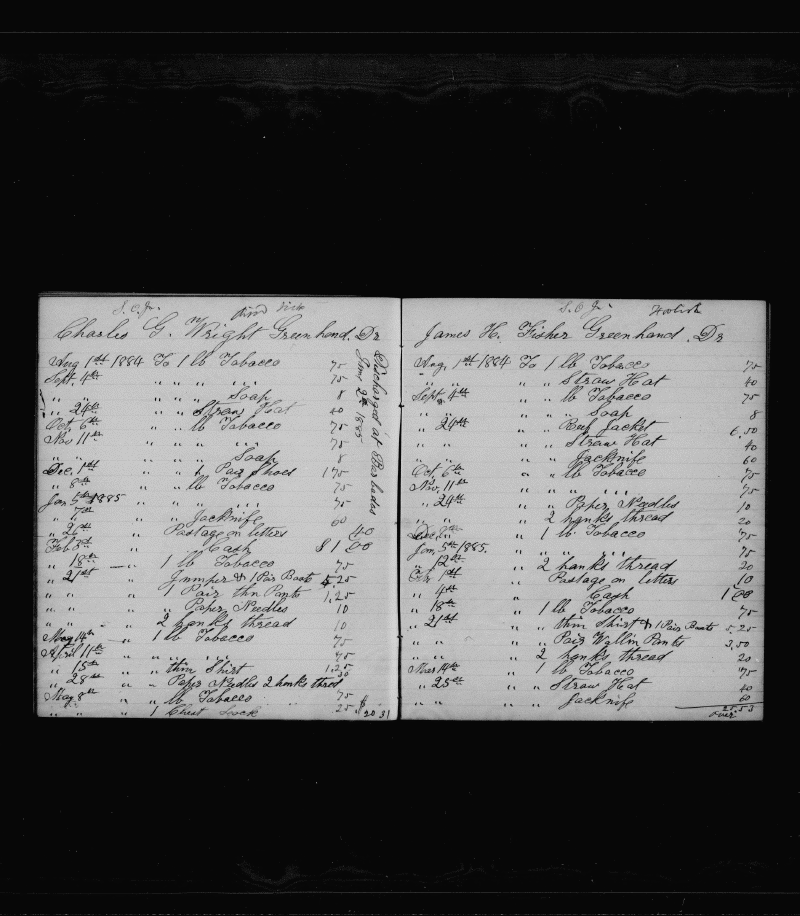 S. O. Jr. third
Charles G. Wright Greenhand. Dr
Discharged at Barbados
June 2nd 1885
Aug 1st 1884 To 1 lb Tobacco 75
Sept 4th " " " " " 75
" " " " " Soap 8
" 24th " " " Straw Hat 40
Oct, 6th " " " lb Tobacco 75
Nov 11th " " " " " 75
" " " " " Soap 8
Dec, 1st " " 1 Pair Shoes 1 75
" 8th " " " lb Tobacco 75
Jan 5th 1885 " " " " " 75
" 7th " " Jacknife 60
" 21st " Postage on letters 40
Feb " Cash $ 1 00
" 18th " 1 lb Tobacco 75
" 21st " Jumper & 1 Pair Boots 5,25
" " " 1 Pair thin Pants 1,25
" " " Paper Needles 10
" " " 2 hanks thread 10
May 14th " 1 lb Tobacco 75
April 11th " " " " 75
" 15th " " thin Shirt 1,25
" 28th " " Paper Needles 2 hanks thred 30
May 8th " " lb Tobacco 75
" " " 1 Chest Lock 25 $ 20 31
S. O. Jr.
James H. Fisher Greenhand. Dr
Aug, 1st 1884 To 1 lb Tobacco 75
" " " " Straw Hat 40
Sept, 4th " " " lb Tobacco 75
" " " " " Soap 8
" 24th " " Beef Jacket 6,50
" " " " " Straw Hat 40
" " " " Jacknife 60
Oct, 6th " " lb Tobacco 75
Nov, 11th " " " " " 75
" 24th " " Paper Needles 10
" " " 2 hanks thread 20
Dec, 8th " 1 lb Tobacco 75
Jan, 5th 1885. " " " " 75
" 12th " 2 hanks thread 20
Feb 1st " Postage on letters 10
" 4th " Cash 1 00
" 18th " 1 lb Tobacco 75
" 21st " " thin Shirt & 1 Pair Boots 5,25
" " " " Pair Pants 3,50
" " " 2 hanks thread 20
Mar 14th " 1 lb Tobacco 75
" 25th " " Straw Hat 40
" " " " Jacknife 60
over 25.53